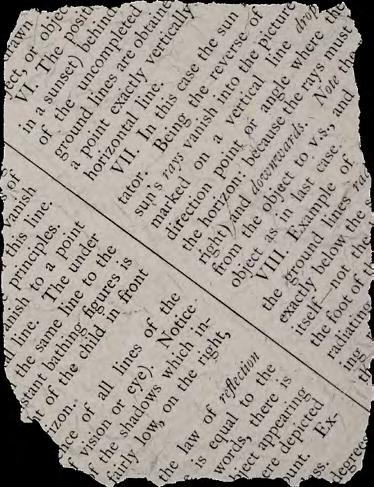 drawn
ject, or obje
VI. The posit
in a sunset) behin
of the uncompleted
ground lines are obtain
a point exactly vertically
horizontal line.
VII. In this case the sun
tator. Being the reverse of
sun's rays vanish into the picture
marked on a vertical line drop
direction point or angle where the
the horizon: because the rays must
right) and downwards. Note the
from the object to v.s., and
object as in last case.
VIII. Example of
the ground lines ra
exactly below the s
itself—not th
the foot of
radiating
ing
th
of
vanish
this line.
principles.
anish to a point
l line. The under
the same line to the
stant bathing figures is
t of the child in front
rizon.
nce of all lines of the
f vision or eye). Notice
f the shadows which in-
fairly low, on the right,
the law of reflection
e is equal to the
words, there is
bject appearing
ere depicted
oint. Ex-
ss.
degrees